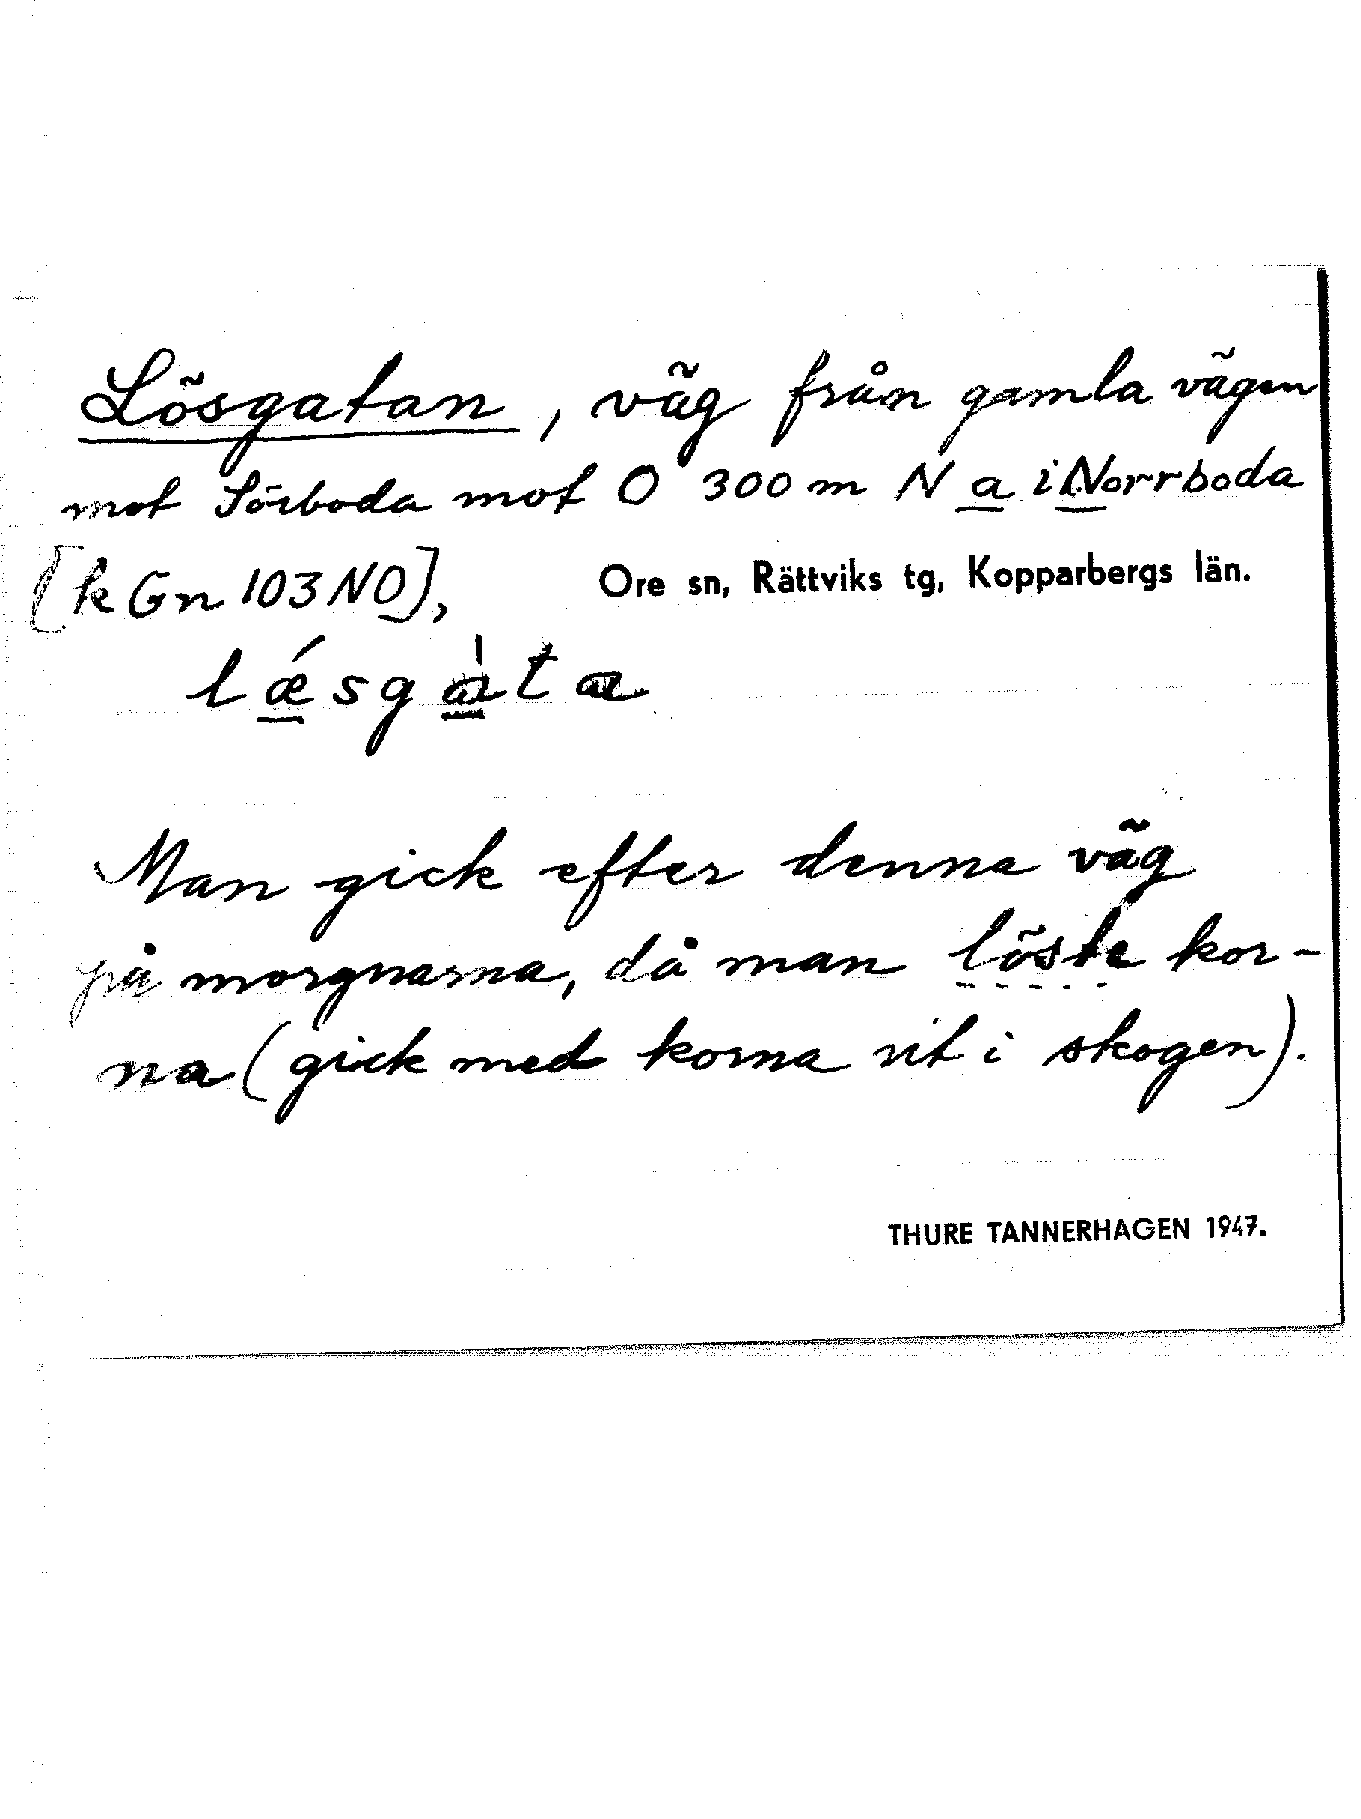 Lösgatan, väg från gamla vägen
mot Sörboda mot O 300 m N a i Norrboda
[k Gn 103 NO],
Ore sn, Rättviks tg, Kopparbergs län.
lǽsgàta
Man gick efter denna väg
på morgnarna, då man löste kor-
na (gick med korna ut i skogen).
THURE TANNERHAGEN 1947.